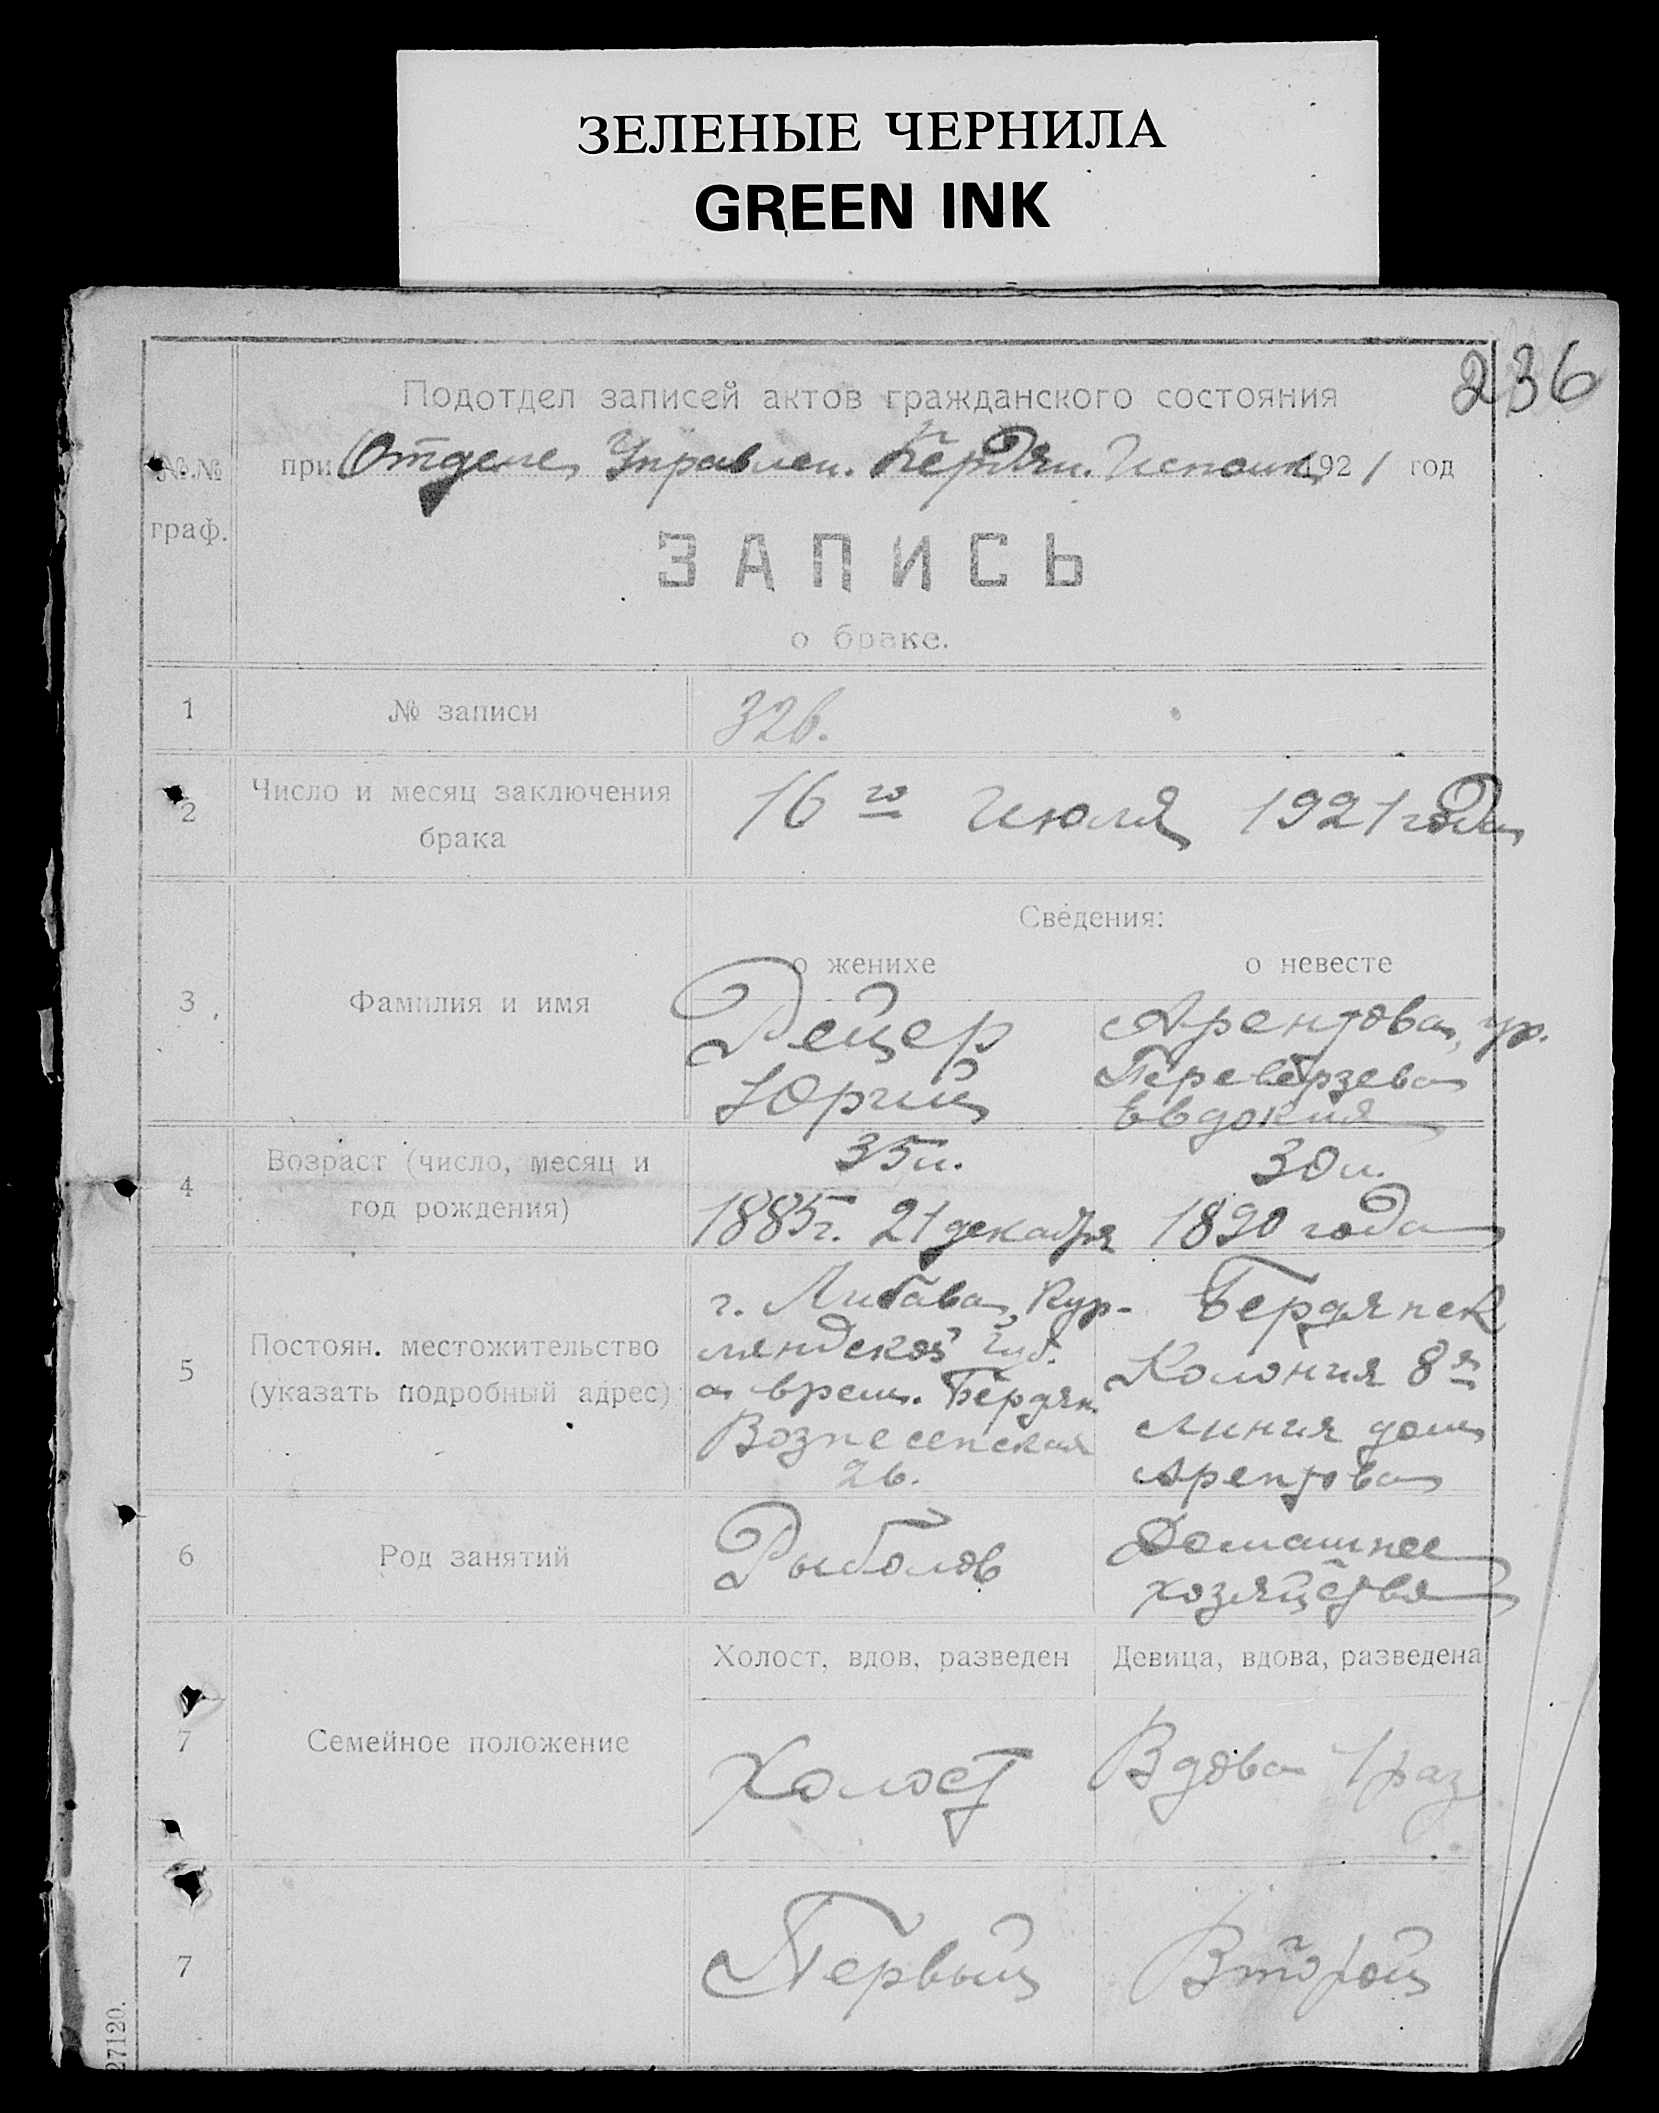 ЗЕЛЕНЫЕ ЧЕРНИЛА
GREEN INK
236
Подотдел записей актов гражданского состояния
№№ граф.
при Отделе Управлен. Бердян. Исполк. 1921 год
ЗАПИСЬ
о браке.
1 № записи 326.
2 Число и месяц заключения
брака
16го Июля 1921 года
Сведения:
о женихе о невесте
3 Фамилия и имя
Дейцер
Юргий
Арентова, ур.
Переверзева
Евдокия
4 Возраст (число, месяц и
год рождения)
35 л.
1885 г. 21 декабря
30 л.
1890 года
5 Постоян. местожительство
(указать подробный адрес)
г. Либава, Кур-
ляндской Губ.
а врем. Бердян.
Вознесенская
26.
Бердянск
Колония 8я
линия дом
Арентова
6 Род занятий
Рыболов
Домашнее
хозяйство
Холост, вдов, разведен Девица, вдова, разведена
7 Семейное положение
Холост
Вдова 1 раз
7
Первый
Второй
27120.